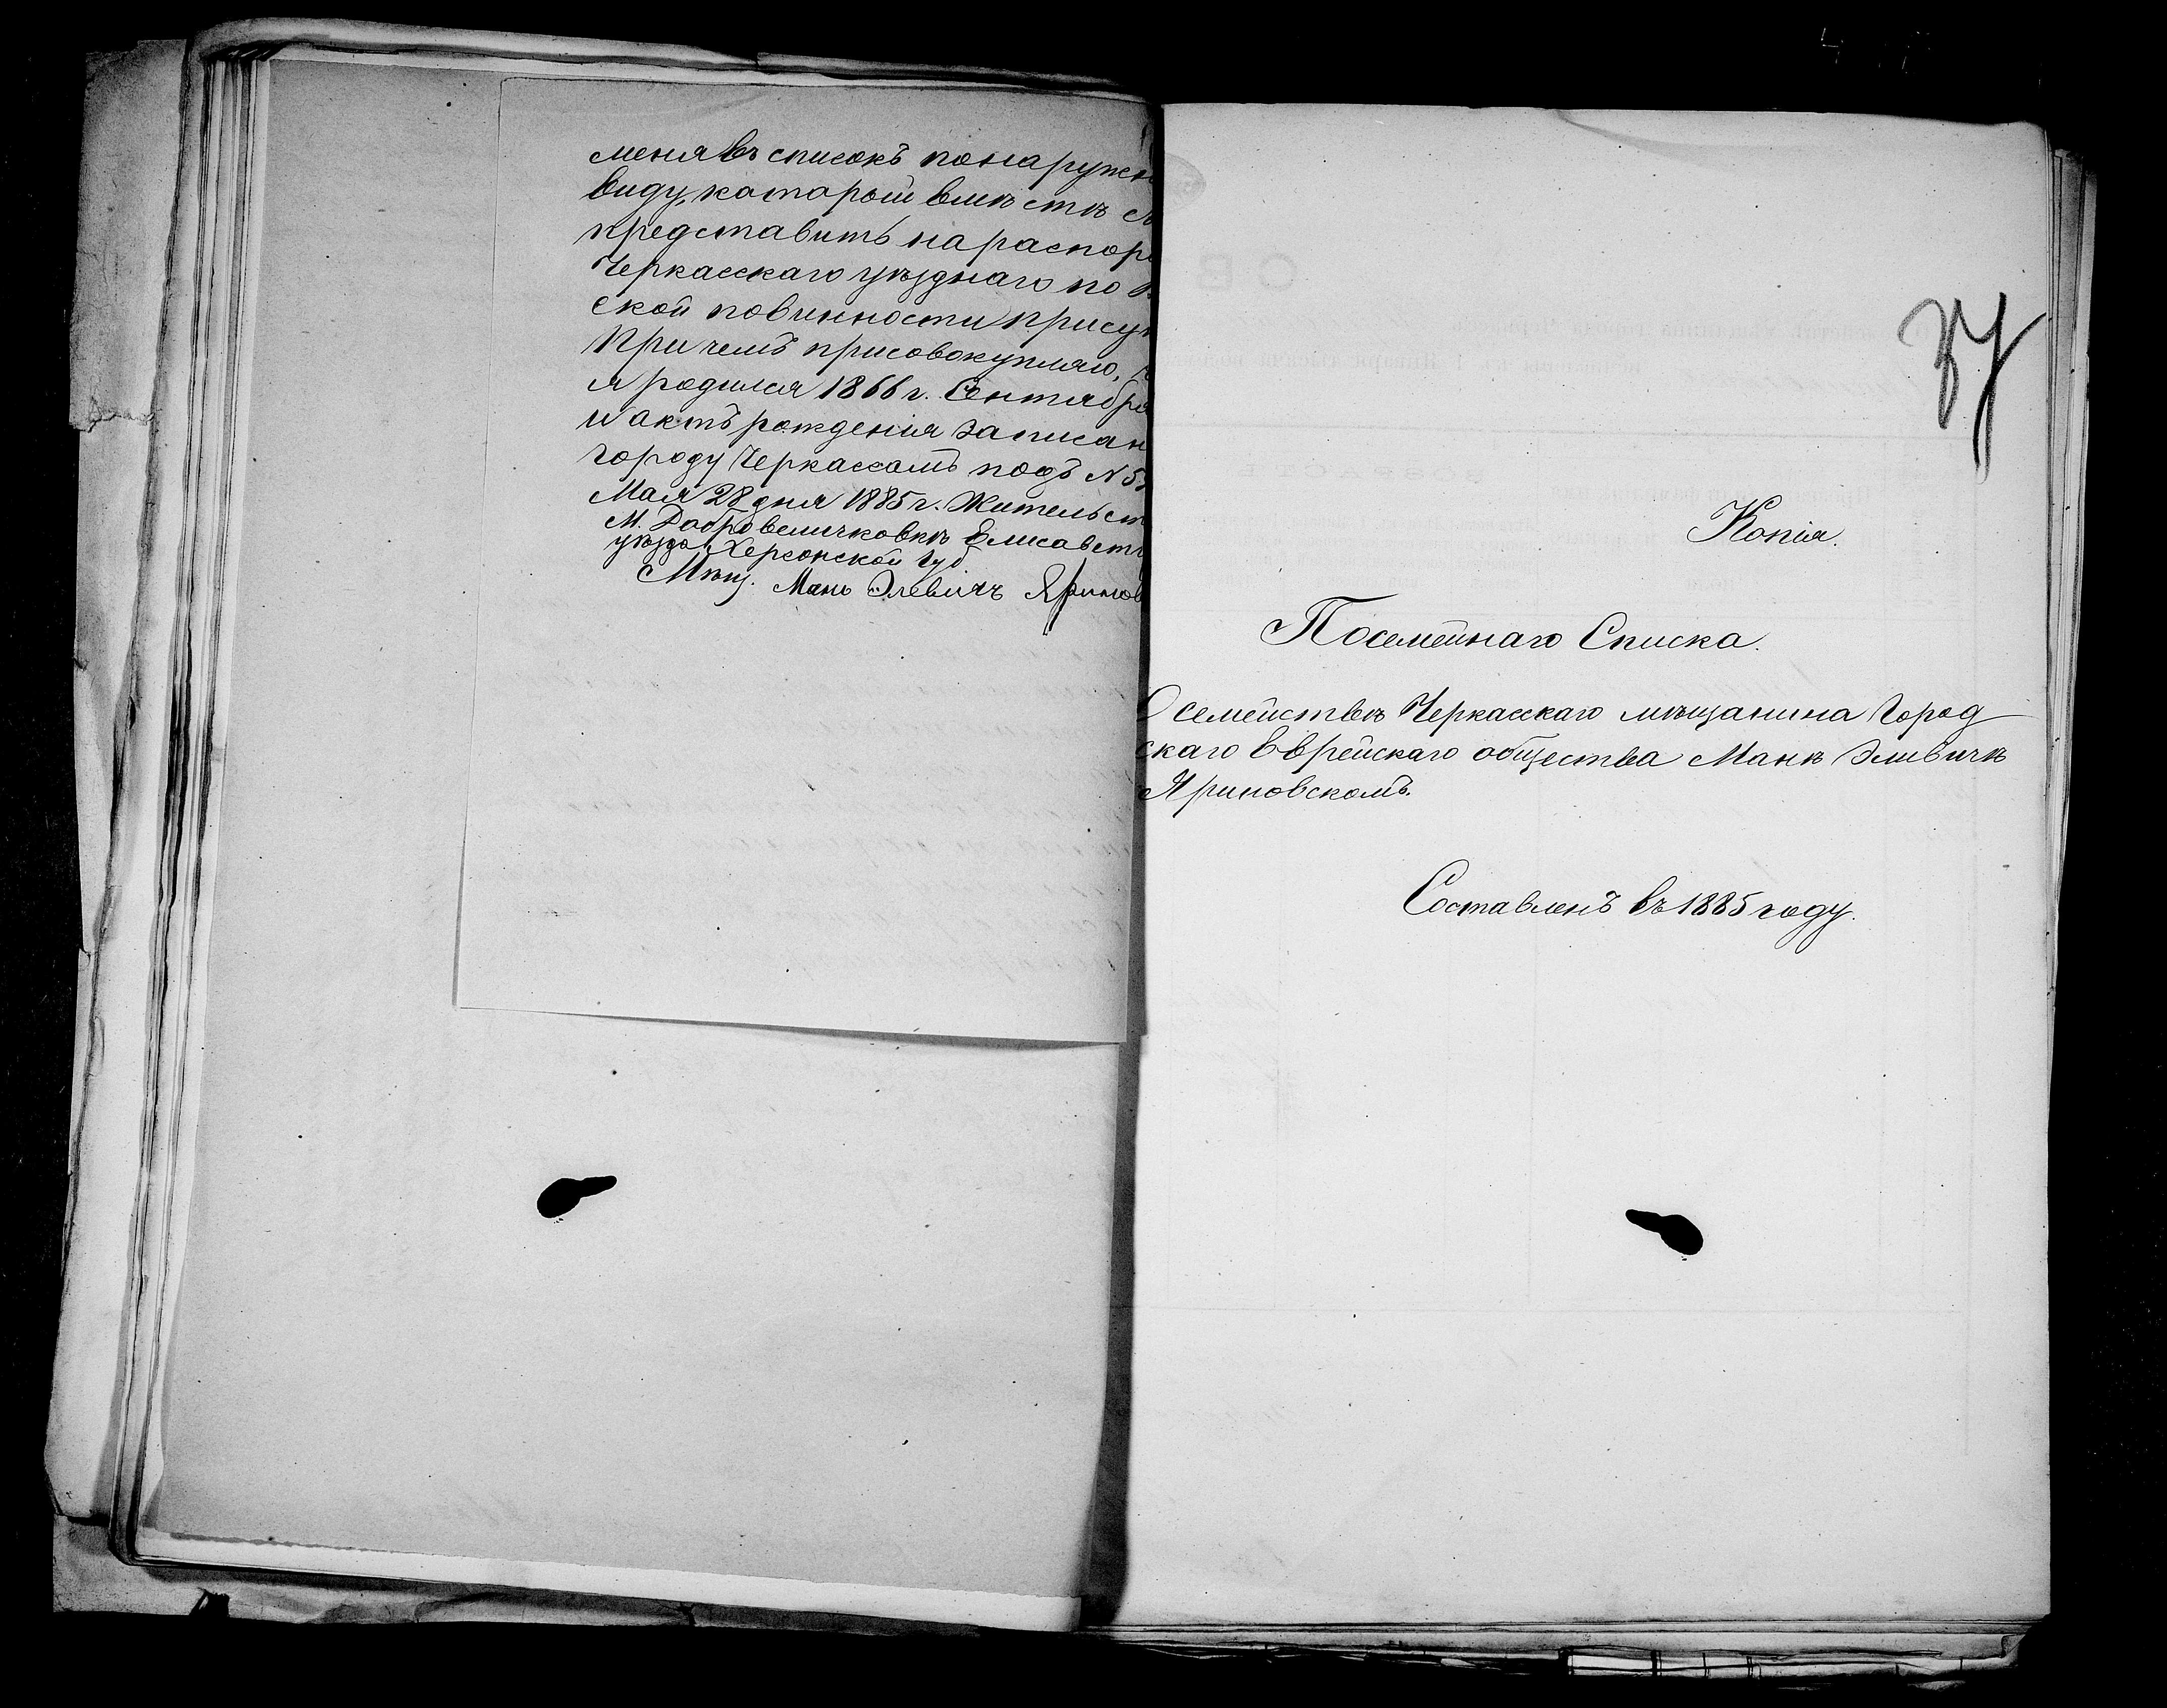 меня въ списокъ по наружн
виду, каторый вместѣ с
представить на распор
Черкасскаго уѣзднаго по в
ской повинности присут
При чемъ присовокупляю,
я родился 1866 г. Сентября
и актъ рождения записан
городу Черкассамъ подъ N 5
Мая 28 дня 1885 г. Жительст
М. Добровеличковкѣ Елисавет
уѣзда Херсонской губ
Мѣщ. Мань Элевичъ Яринов
37
Копія.
Посемейнаго Списка.
О семействѣ Черкасскаго мѣщанина Город
скаго Еврейскаго общества Манѣ Эливичѣ
Яриновскомъ.
Составленъ въ 1885 году.